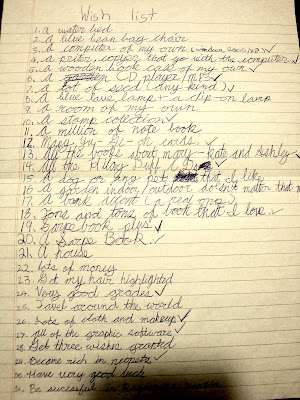 Wish list
1. A water bed
2. A blue bean bag chair
3. A computer of my own (window 2000/XP) ✓
4. A printer, copyer that go with the computer ✓
5. A wooden book case of my own ✓
6. A CD player/mp3 ✓
7. A lot of seed (any kind) ✓
8. A blue lava lamp + a clip-on lamp
9. A room of my own
10. A stamp collection ✓
11. A million of note book
12. Many Yu-Gi-oh cards ✓
13. All the books about mary-kate and Ashley ✓
14. All the Hilary
15. A dog or any pet that I like
16. A garden indoor/outdoor doesn't matter that m
17. A bank account (a real one) ✓
18. Tons and tons of book that I love ✓
19. book plus ✓
20. A Book ✓
21. A house
22. Lots of money
23. Get my hair highlighted
24. Very good grades ✓
25. Travel around the world
26. Lots of cloth and makeup ✓
27. All of the graphic software ✓
28. Get three wishes granted
29. Became rich in neopets ✓
30. Have very good luck
31. Be successful in